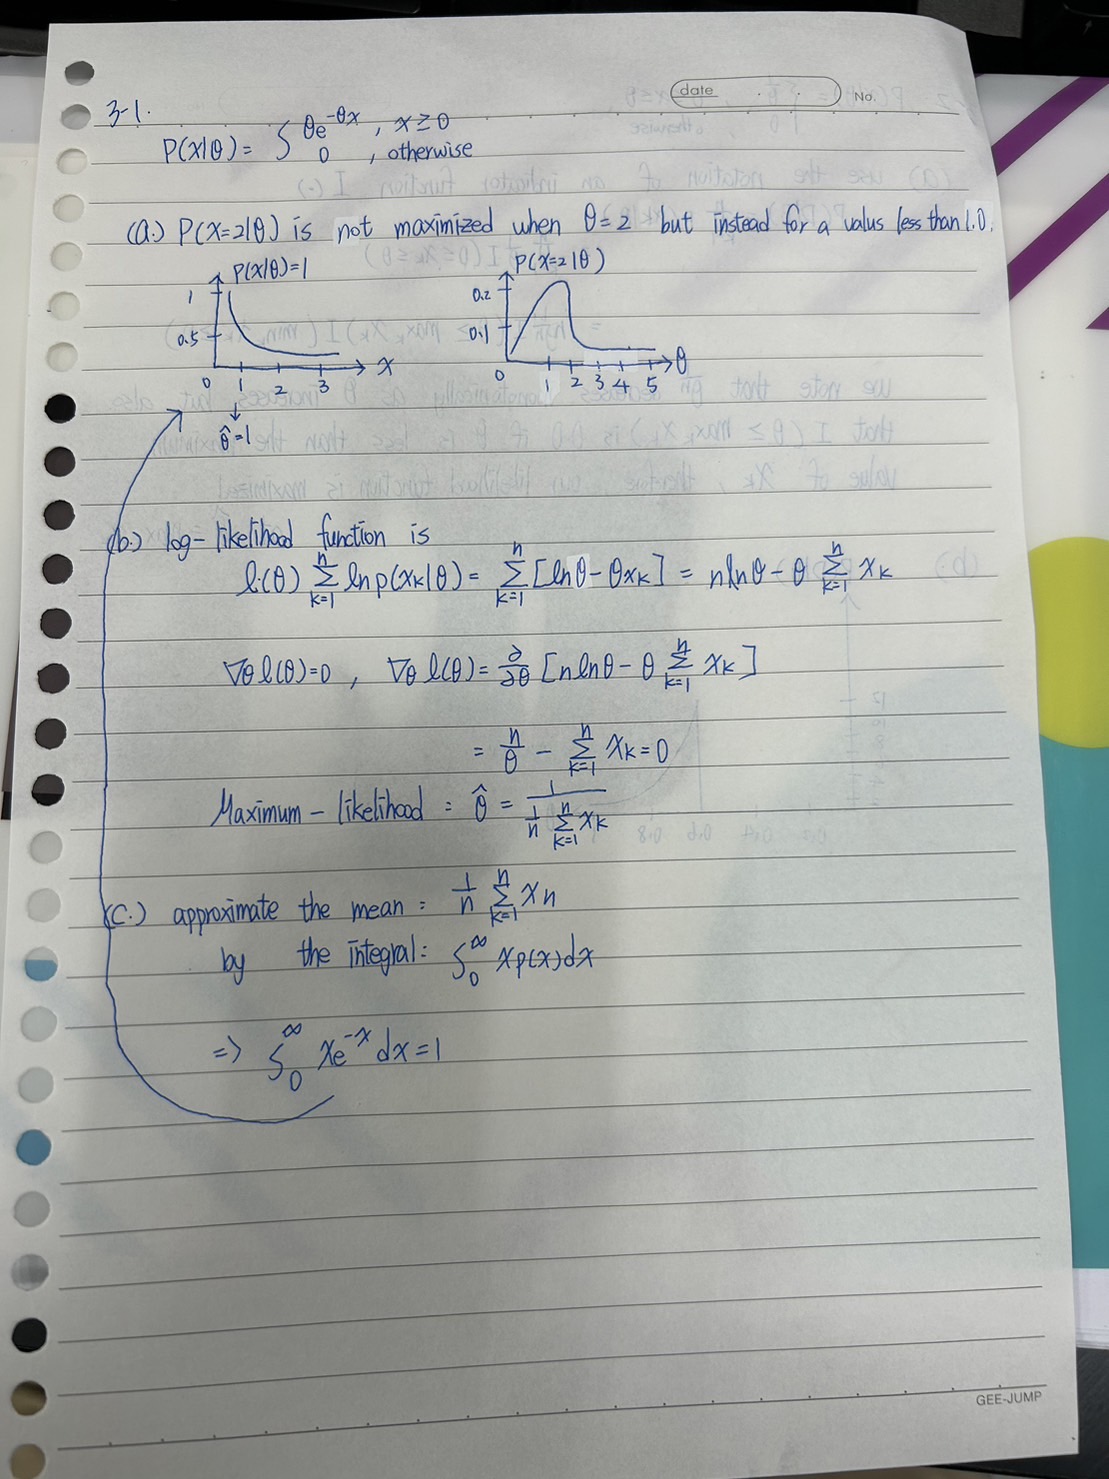 date . .
No.
3-1.
P(x|θ) = { θe^{-θx} , x ≥ 0
0 , otherwise
(a.) P(x=2|θ) is not maximized when θ=2 but instead for a valus less than 1.0.
P(x|θ)=1
P(x=2|θ)
1
0.5
0 1 2 3 x
0.2
0.1
0 1 2 3 4 5 θ
θ̂=1
(b.) log-likelihood function is
l(θ) Σ_{k=1}^{n} ln p(x_k|θ) = Σ_{k=1}^{n} [lnθ - θx_k] = n lnθ - θ Σ_{k=1}^{n} x_k
∇_θ l(θ)=0 , ∇_θ l(θ) = ∂/∂θ [n lnθ - θ Σ_{k=1}^{n} x_k]
= n/θ - Σ_{k=1}^{n} x_k = 0
Maximum-likelihood : θ̂ = 1/(1/n Σ_{k=1}^{n} x_k)
(c.) approximate the mean : 1/n Σ_{k=1}^{n} x_n
by the integral: ∫_0^∞ xp(x)dx
=> ∫_0^∞ xe^{-x} dx = 1
GEE-JUMP